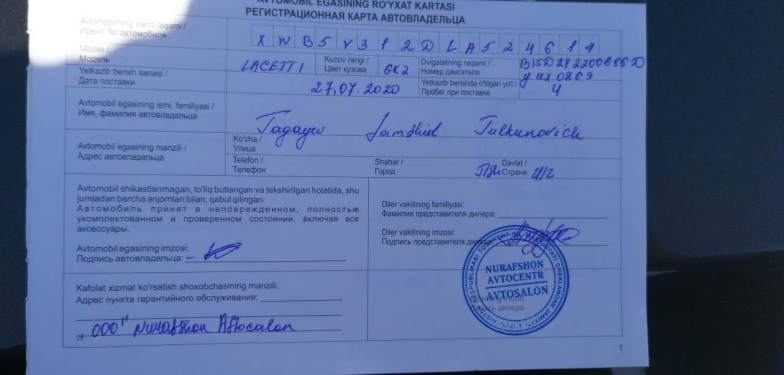 AVTOMOBIL EGASINING RO'YXAT KARTASI
РЕГИСТРАЦИОННАЯ КАРТА АВТОВЛАДЕЛЬЦА
Avtomobil ident.raqami /
Идент № автомобиля
X W B 5 V 3 1 2 D L A 5 2 4 6 1 9
Model /
Модель
LACETTI
Kuzov rangi /
Цвет кузова
GK2
Dvigatelning raqami /
Номер двигателя
Yetkazib berish sanasi /
Дата поставки
27,07.2020
Yetkazib berishda o'tilgan yo'l /
Пробег при поставке
4
Avtomobil egasining ismi, familiyasi /
Имя, фамилия автовладельца
Tagayev Jamshid Tulkunovich
Avtomobil egasining manzili /
Адрес автовладельца
Ko'cha /
Улица
Telefon /
Телефон
Shahar /
Город
Davlat /
Страна
Avtomobil shikastlanmagan, to'liq butlangan va tekshirilgan holatida, shu
jumladan barcha anjomlari bilan, qabul qilingan.
Автомобиль принят в неповрежденном, полностью
укомплектованном и проверенном состоянии, включая все
аксессуары.
Avtomobil egasining imzosi:
Подпись автовладельца:
Diler vakilining familiyasi:
Фамилия представителя дилера:
Diler vakilining imzosi:
Подпись представителя дилера:
NURAFSHON
AVTOCENTR
AVTOSALON
Kafolat xizmat ko'rsatish shoxobchasining manzili:
Адрес пункта гарантийного обслуживания:
"ООО" Nurafshon Aftosalon
1